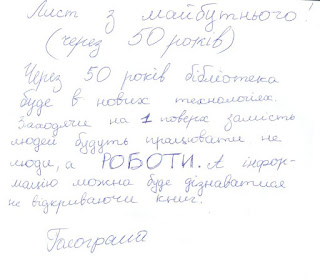 Лист з майбутнього!
(через 50 років)
Через 50 років бібліотека
буде в нових технологіях.
Заходячи на 1 поверх замість
людей будуть працювати не
люди, а РОБОТИ. А інфор-
мацію можна буде дізнаватися
не відкриваючи книг.